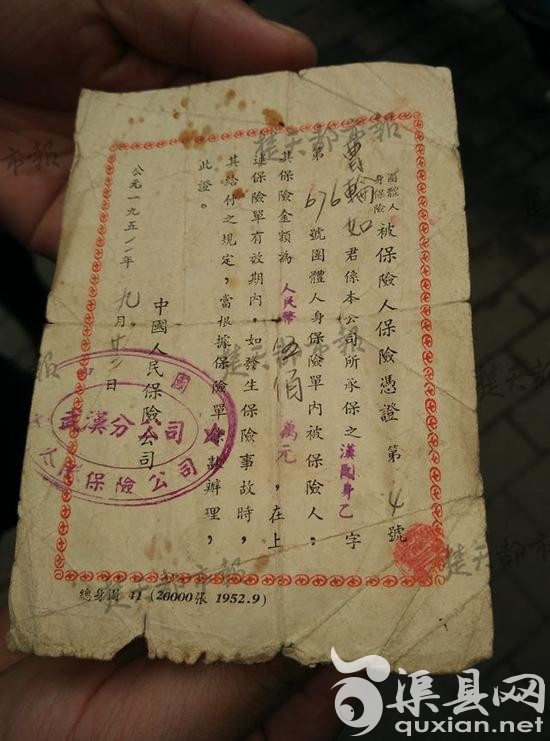 團體人身保險 被保險人保險憑證 第 4 號
曹輪如 君係本公司所承保之 漢團身乙 字
第 676 號團體人身保險單內被保險人。
其保險金額為 人民幣 伍佰 萬元,在上
述保險單有效期內,如發生保險事故時,
其給付之規定,當根據保險單條款辦理,
此證。
中國人民保險公司
公元一九五 年 九月 廿 日
武漢分公司
保險公司
總身團 41 (20000張 1952.9)
楚天都市報
渠县网
quxian.net